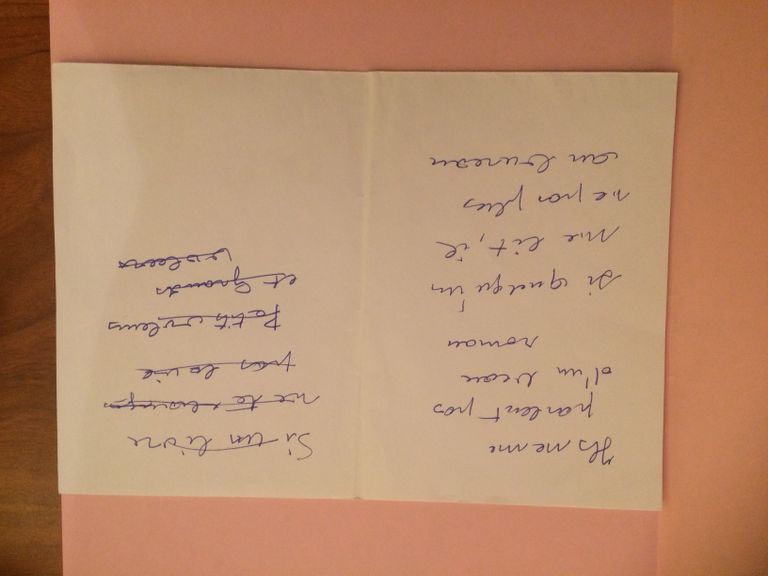 Ils ne me
parlent pas
d'un beau
roman
Si quelqu'un
me lit, il
ne pas plus
au bureau
Si un livre
ne te change
pas la vie
Petits voleurs
et Grands
voleurs